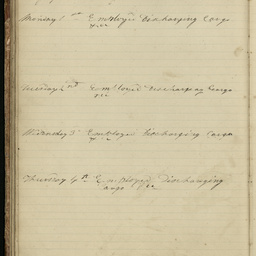 Monday 1st Employed Discharging Cargo
&c
Tuesday 2nd Employed Discharging Cargo
&c
Wednesday 3 Employed Discharging Cargo
&c
Thursday 4th Employed Discharging
Cargo &c